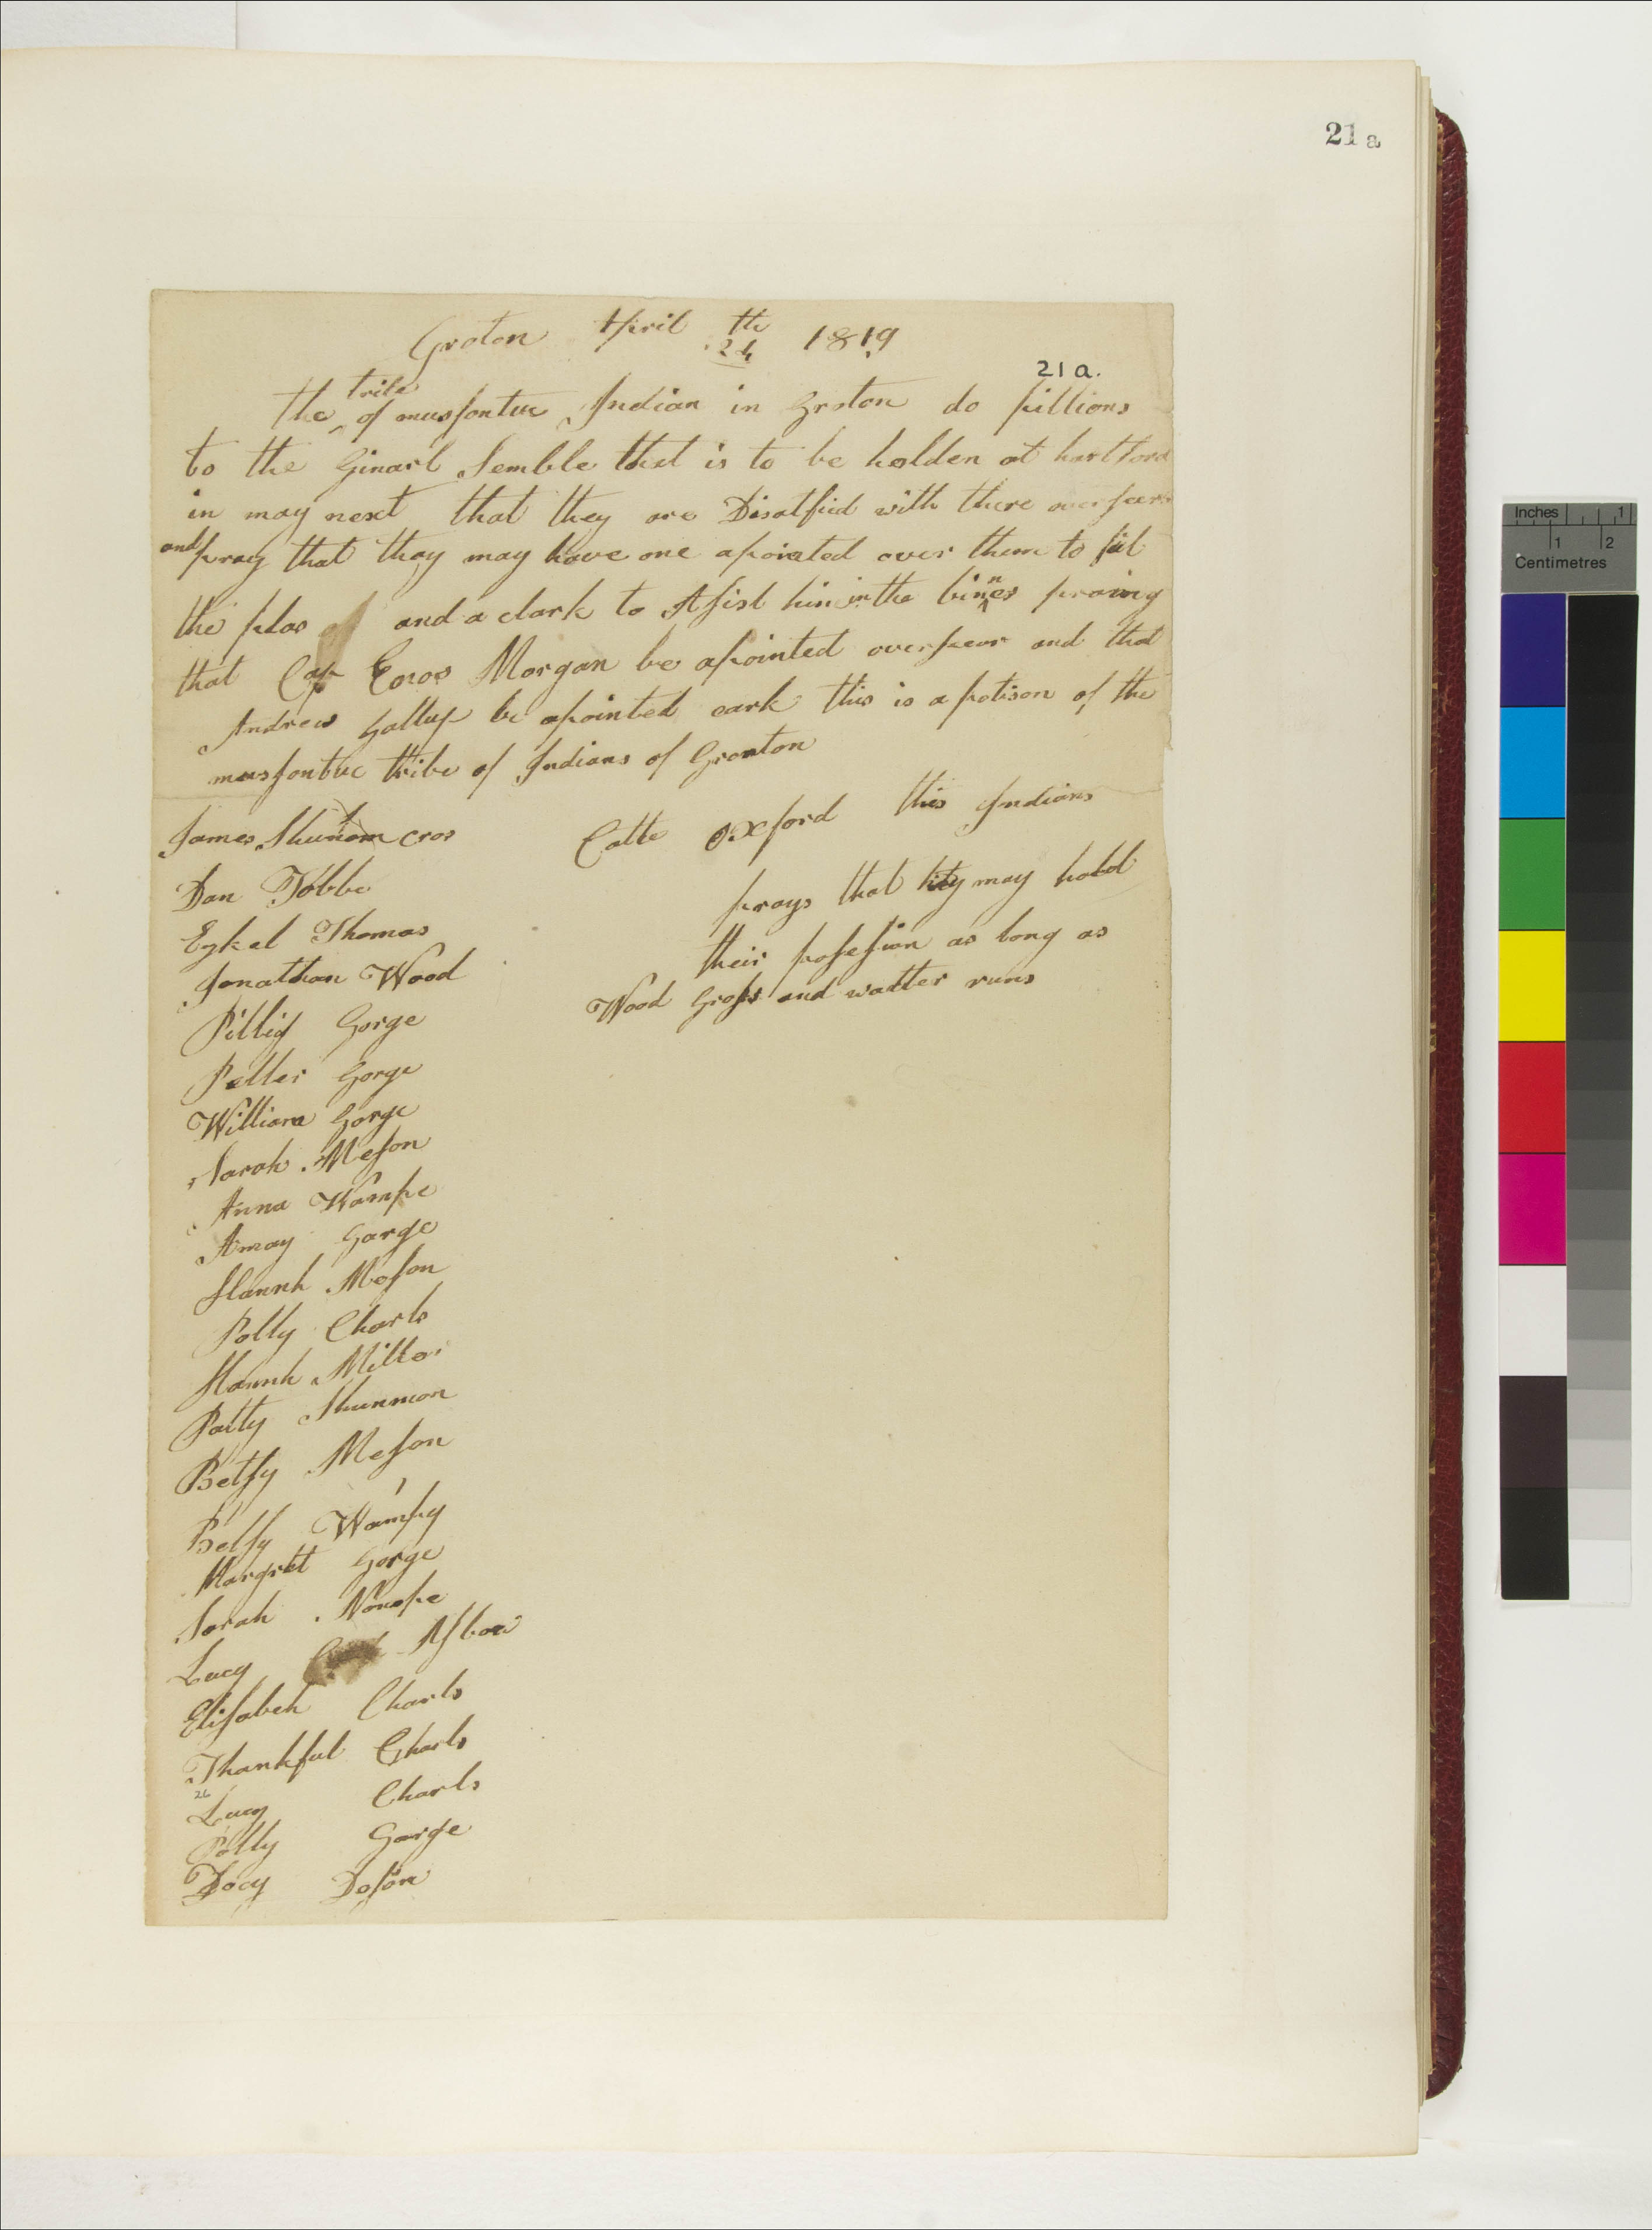 21 a
Groton April 24th 1819
21a.
the tribe of musfontuc Indian in Groton do pittions
to the Ginarl Semble that is to be holden at hartford
in may next that they are Disatfied with there overseer
and pray that thay may have one apointed over them to fil
the plas and a clark to Assist him in the binnes praing
that Cap Enos Morgan be apointed overseear and that
Andrew Gallup be apointed cark this is a potison of the
musfontuc tribe of Indians of Gronton
James Shunom cros
Catte Oxford this Indians
Dan Tobbe
prays that thy may hold
Ezkel Thomas
their possession as long as
Jonathan Wood
Wood Gross and watter runs
Pillig Gorge
Petter Gorge
William Gorge
Sarah Meson
Anna Wampe
Amay Gorge
Hannh Meson
Polly Charls
Hannh Miller
Patty Shunmon
Betsy Meson
Betsy Wampy
Margret Gorge
Sarah Nonespe
Lucy Asbow
Elisabeh Charls
Thankful Charls
26
Lucy Charls
Polly Gorge
Docy Doson
Inches 1
1 2
Centimetres